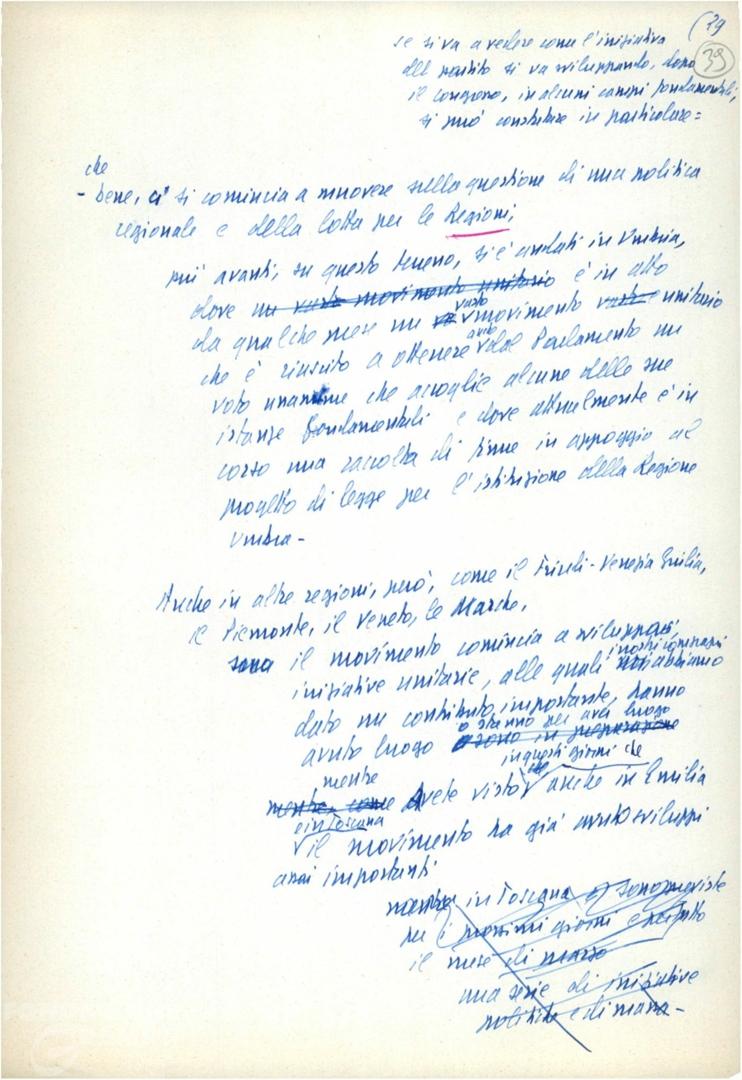 (39
39
se si va a vedere come l'iniziativa
del partito si va sviluppando, dopo
il congresso, in alcuni campi fondamentali,
si può constatare in particolare =
che
- bene, ci si comincia a muovere sulla questione di una politica
regionale e della lotta per le Regioni;
più avanti, su questo terreno, si è andati in Umbria,
dove un vasto movimento unitario è in atto
da qualche mese un vasto movimento vasto e unitario
che è riuscito a ottenere dal Parlamento un
voto unanime che accoglie alcune delle sue
istanze fondamentali e dove attualmente è in
corso una raccolta di firme in appoggio al
progetto di legge per l'istituzione della Regione
Umbra -
Anche in altre regioni, però, come il Friuli-Venezia Giulia,
il Piemonte, il Veneto, le Marche,
il movimento comincia a svilupparsi,
iniziative unitarie, alle quali i nostri compagni
dato un contributo importante, hanno
o stanno per aver luogo
avuto luogo o sono in preparazione
in questi giorni che
mentre
mentre, come Avete visto che anche in Emilia
e in Toscana
il movimento ha già avuto sviluppi
assai importanti
mentre in Toscana si sono previste
per i prossimi giorni e per tutto
il mese di marzo
una serie di iniziative
politiche e di massa -